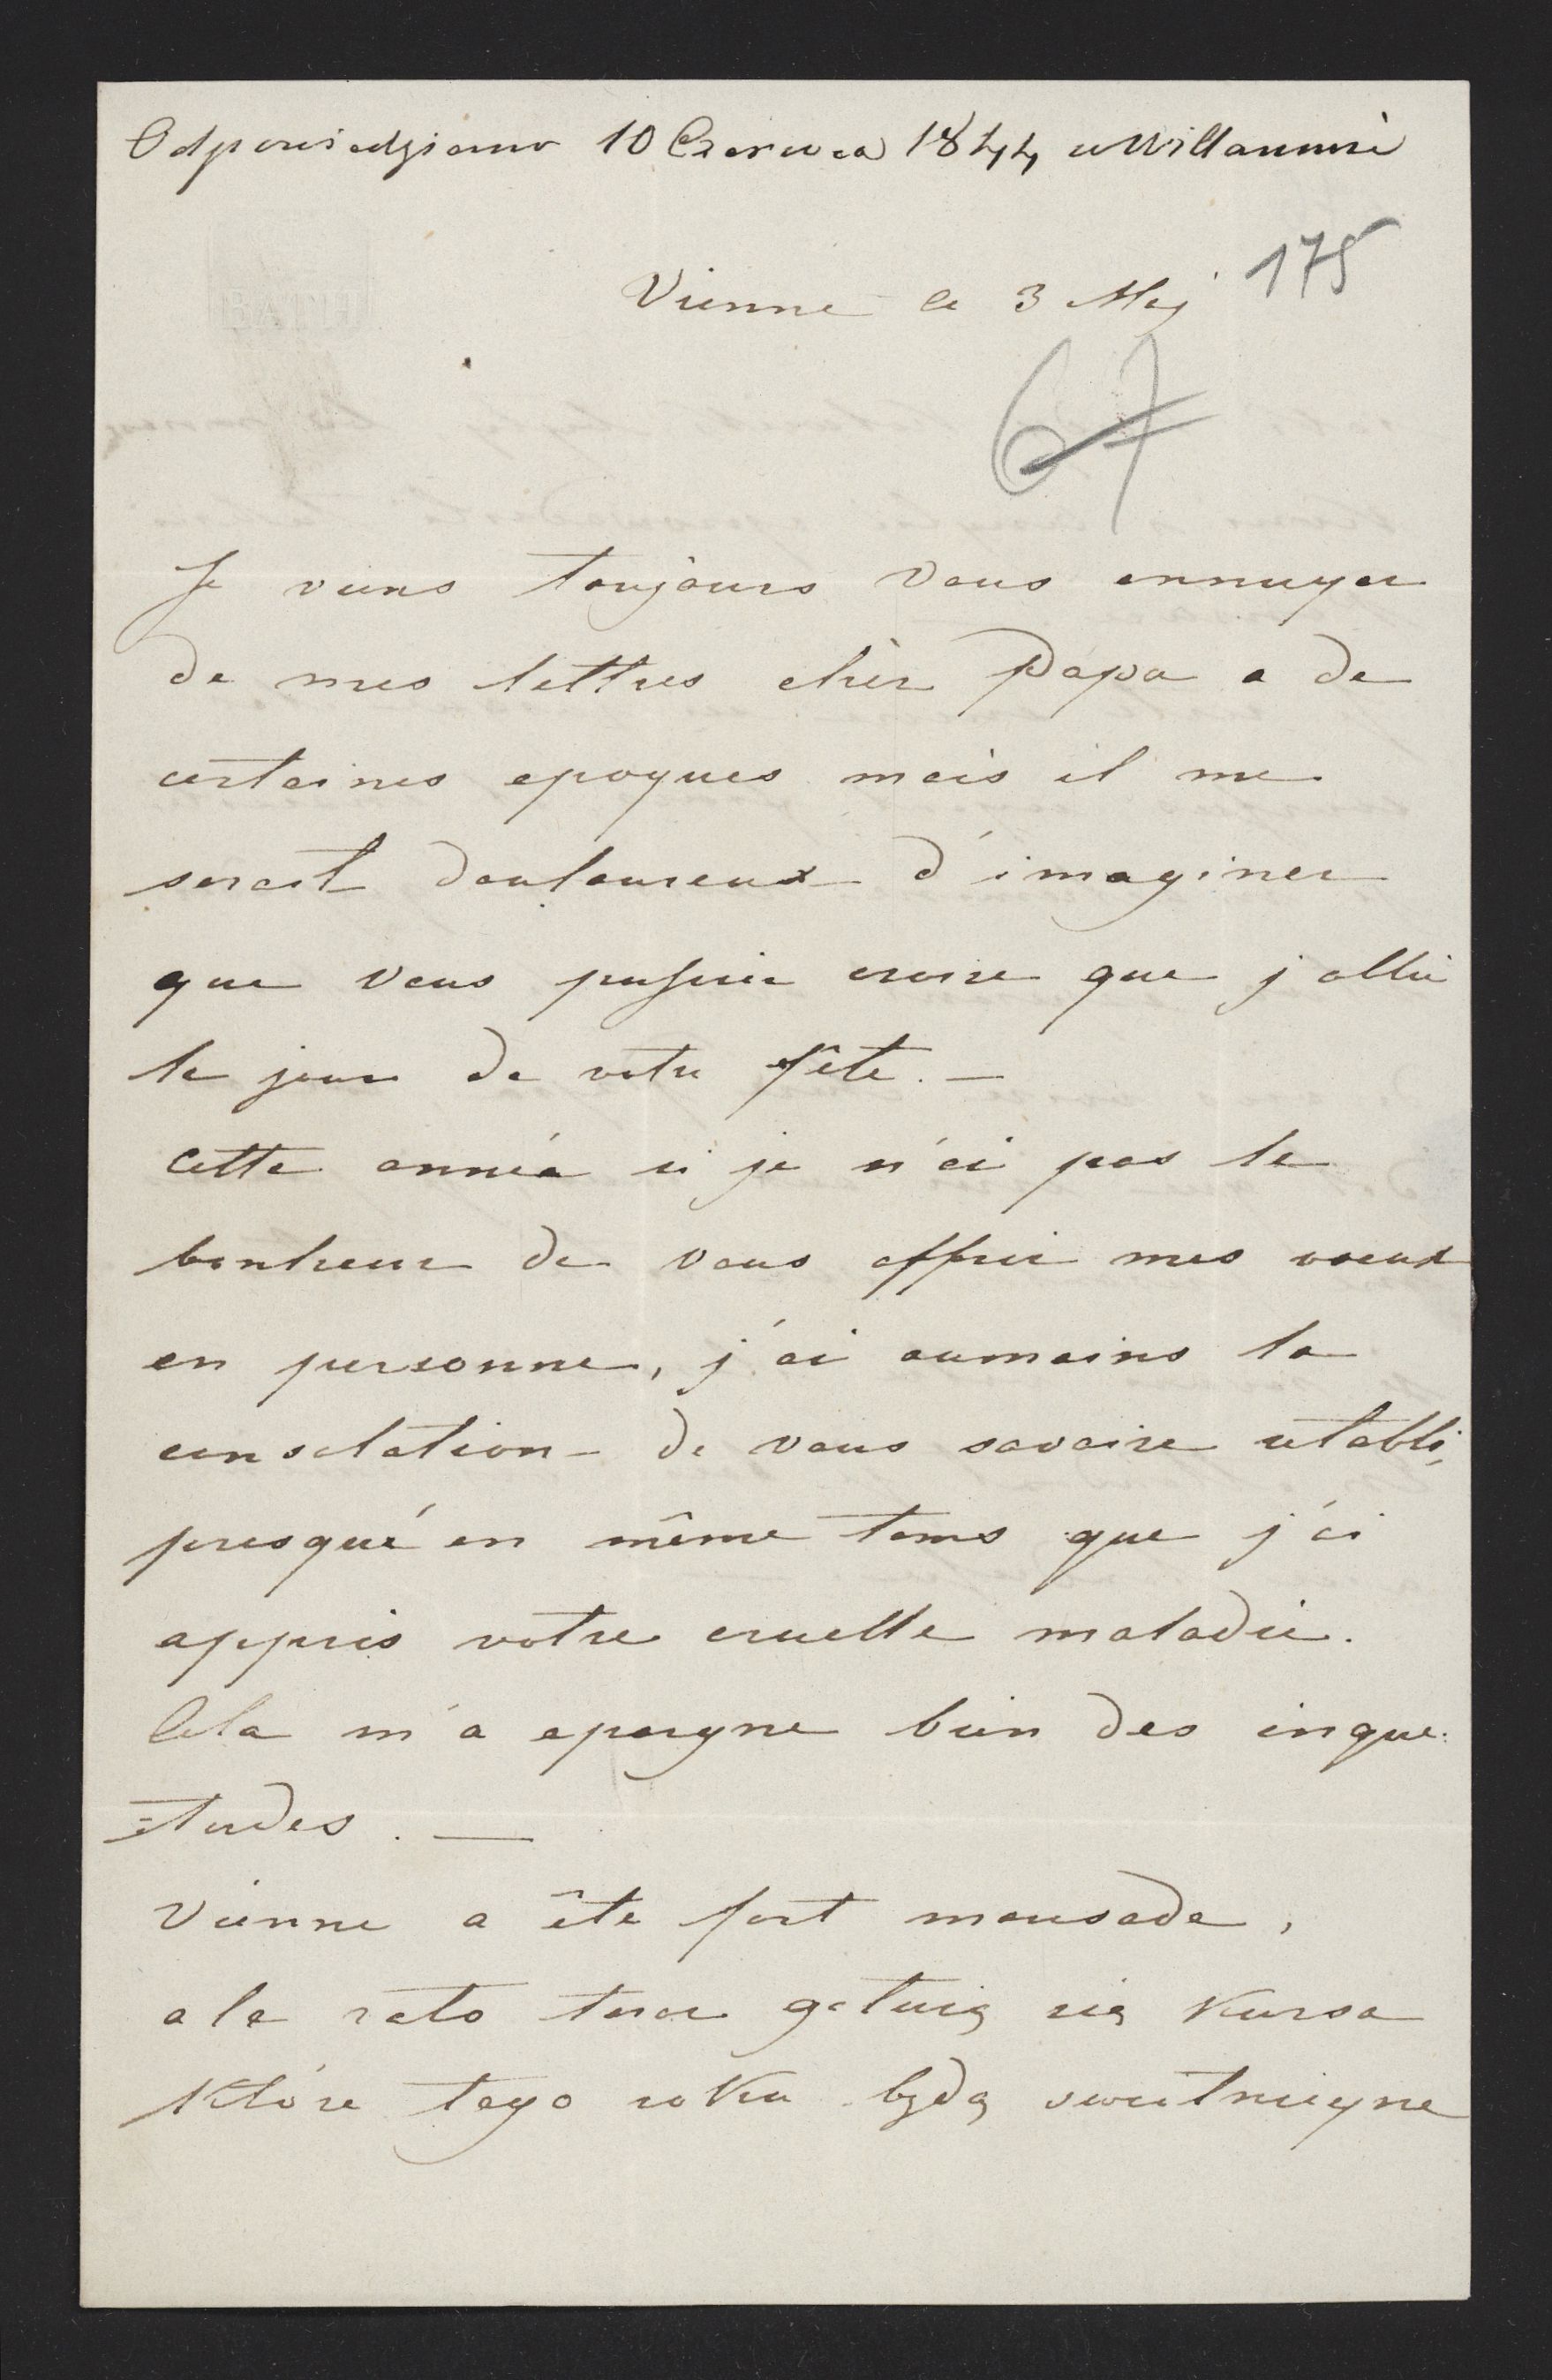 Odpowiedziano 10 Czerwca 1844 w Willanowie
175
Vienne le 3 Mej
67
Je viens toujours vous ennuyer
de mes lettres chèr Papa a de
certaines epoques mais il me
serait douloureux d'imaginer
que vous pussiez croire que j'oblie
le jour de votre fête. —
Cette année si je n'ai pas le
bonheur de vous offrir mes voeux
en personne, j'ai aumoins la
consolation de vous savoire retabli,
presqué en même tems que j'ai
appris votre cruelle maladie.
Cela m'a epargne bien des inque:
=tudes. —
Vienne a ête fort mausade,
ale zato teraz gotuią się Kursa
Któré tego roku będą swietnieyne